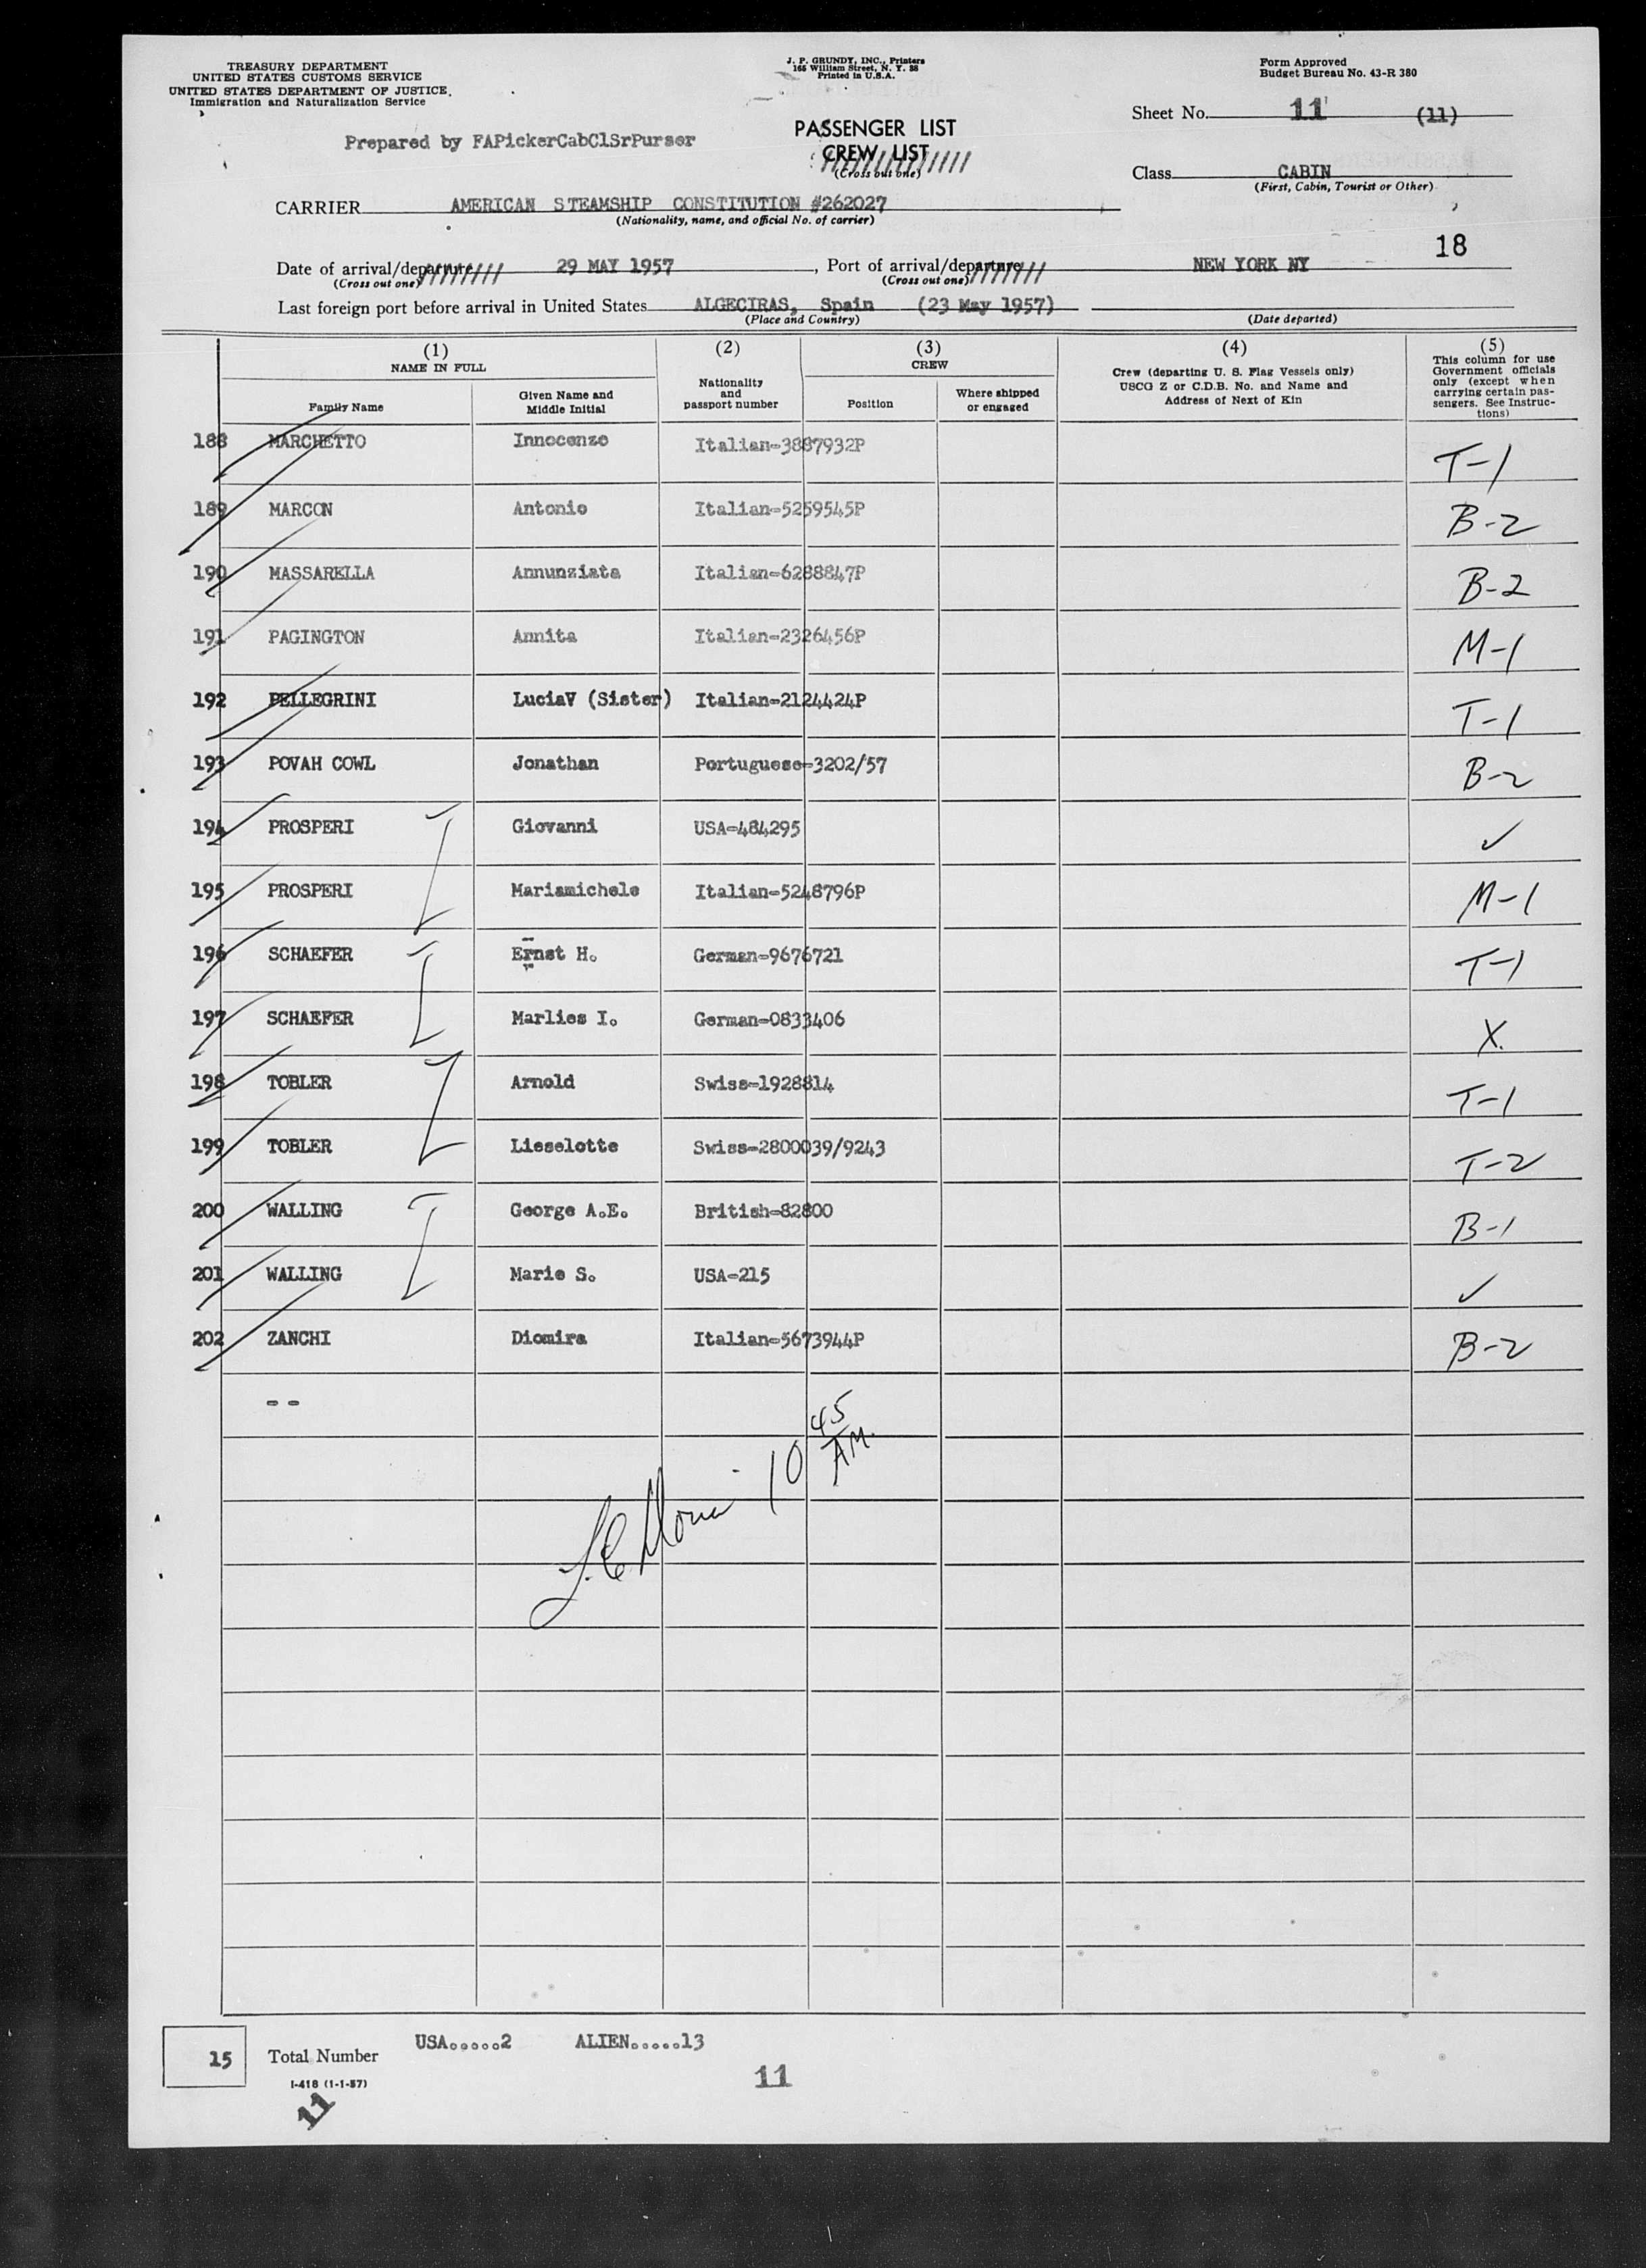 TREASURY DEPARTMENT
UNITED STATES CUSTOMS SERVICE
UNITED STATES DEPARTMENT OF JUSTICE
Immigration and Naturalization Service
J. P. GRUNDY, INC., Printers
165 William Street, N. Y. 38
Printed in U.S.A.
Form Approved
Budget Bureau No. 43-R 380
Prepared by FAPickerCabClSrPurser
PASSENGER LIST
CREW LIST
(Cross out one)
Sheet No. 11 (11)
Class CABIN
(First, Cabin, Tourist or Other)
CARRIER AMERICAN STEAMSHIP CONSTITUTION #262027
(Nationality, name, and official No. of carrier)
18
Date of arrival/departure 29 MAY 1957, Port of arrival/departure NEW YORK NY
(Cross out one) (Cross out one)
Last foreign port before arrival in United States ALGECIRAS, Spain (23 May 1957)
(Place and Country) (Date departed)
(1) NAME IN FULL
Family Name
Given Name and Middle Initial
(2) Nationality and passport number
(3) CREW
Position
Where shipped or engaged
(4) Crew (departing U. S. Flag Vessels only) USCG Z or C.D.B. No. and Name and Address of Next of Kin
(5) This column for use Government officials only (except when carrying certain passengers. See Instructions)
188 MARCHETTO Innocenzo Italian-3887932P T-1
189 MARCON Antonio Italian-5259545P B-2
190 MASSARELLA Annunziata Italian-6288847P B-2
191 PAGINGTON Annita Italian-2326456P M-1
192 PELLEGRINI LuciaV (Sister) Italian-2124424P T-1
193 POVAH COWL Jonathan Portuguese-3202/57 B-2
194 PROSPERI Giovanni USA-484295 ✓
195 PROSPERI Mariamichele Italian-5248796P M-1
196 SCHAEFER Ernst H. German-9676721 T-1
197 SCHAEFER Marlies I. German-0833406 X.
198 TOBLER Arnold Swiss-1928814 T-1
199 TOBLER Lieselotte Swiss-2800039/9243 T-2
200 WALLING George A.E. British-82800 B-1
201 WALLING Marie S. USA-215 ✓
202 ZANCHI Diomira Italian-5673944P B-2
--
10 45 AM.
15 Total Number USA.....2 ALIEN.....13
I-418 (1-1-57)
11
11